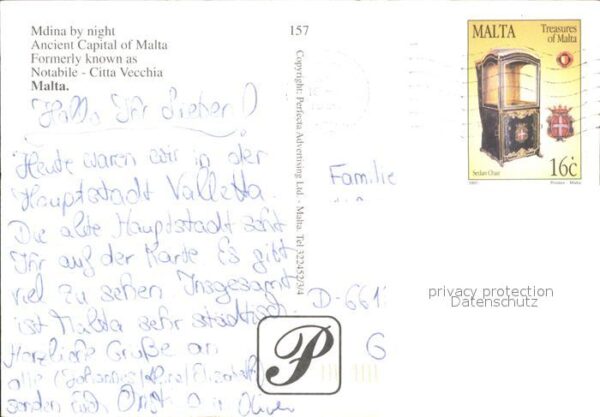 Mdina by night
Ancient Capital of Malta
Formerly known as
Notabile - Citta Vecchia
Malta.
Hallo Ihr Lieben!
Heute waren wir in der
Hauptstadt Valletta.
Die alte Hauptstadt seht
Ihr auf der Karte Es gibt
viel zu sehen Insgesamt
ist Malta sehr städtisch.
Herzliche Grüße an
alle (Johannes
senden Euch Oliver
157
Copyright: Perfecta Advertising Ltd. - Malta. Tel 322452/3/4
P
MALTA
Treasures
of Malta
Sedan Chair
16c
Familie
D-661
G
privacy protection
Datenschutz